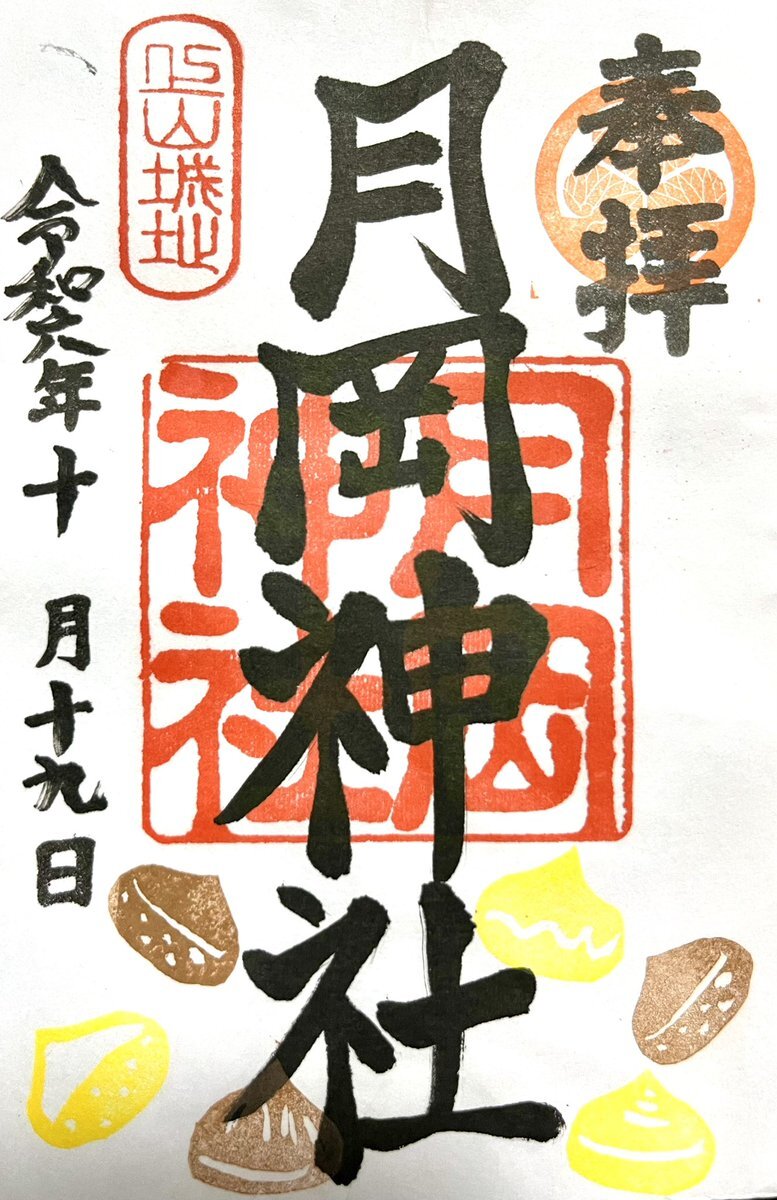 奉拝
月岡神社
月岡
神社
上山城地
令和六年十月十九日